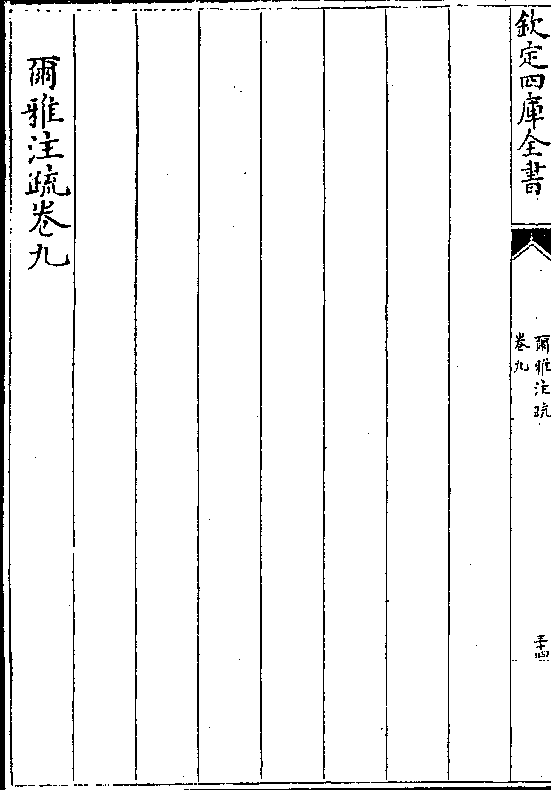 欽定四庫全書
爾雅注疏
卷九
三十四
爾雅注疏卷九